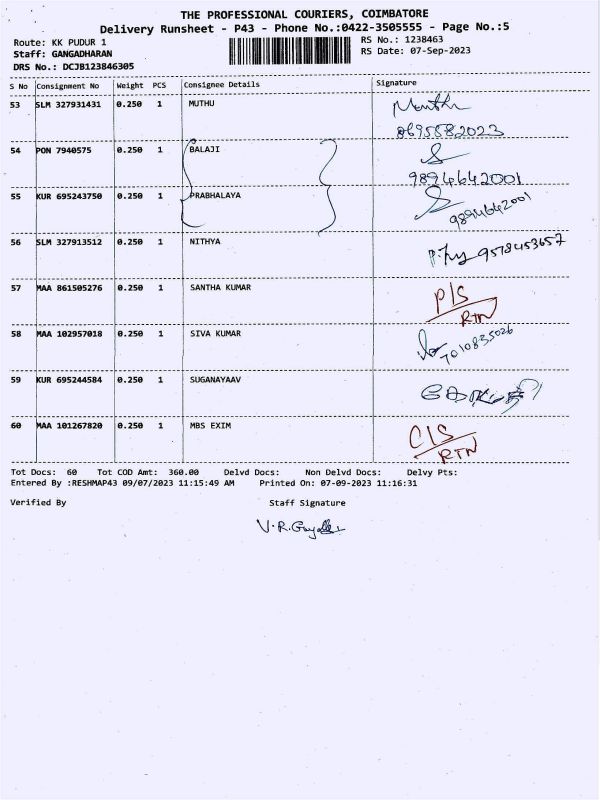 THE PROFESSIONAL COURIERS, COIMBATORE
Delivery Runsheet - P43 - Phone No.:0422-3505555 - Page No.:5
Route: KK PUDUR 1 RS No.: 1238463
Staff: GANGADHARAN RS Date: 07-Sep-2023
DRS No.: DCJB123846305
S No Consignment No Weight PCS Consignee Details Signature
53 SLM 327931431 0.250 1 MUTHU Muthu
8695582023
54 PON 7940575 0.250 1 BALAJI
9894642001
55 KUR 695243750 0.250 1 PRABHALAYA
9894642001
56 SLM 327913512 0.250 1 NITHYA 9578453657
57 MAA 861505276 0.250 1 SANTHA KUMAR P/S
RTN
58 MAA 102957018 0.250 1 SIVA KUMAR
7010835026
59 KUR 695244584 0.250 1 SUGANAYAAV
60 MAA 101267820 0.250 1 MBS EXIM C/S
RTN
Tot Docs: 60 Tot COD Amt: 360.00 Delvd Docs: Non Delvd Docs: Delvy Pts:
Entered By :RESHMAP43 09/07/2023 11:15:49 AM Printed On: 07-09-2023 11:16:31
Verified By Staff Signature
V.R.